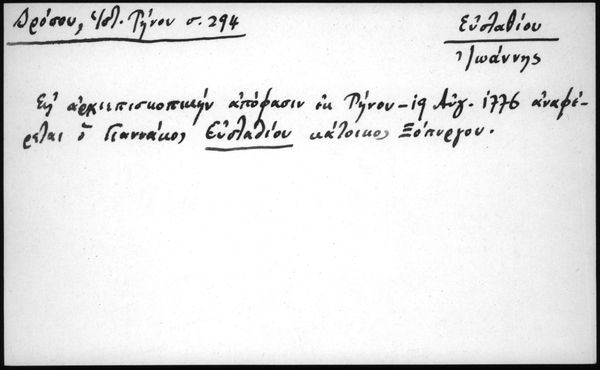 Δρόσου, ἱστ. Τήνου σ. 294
Εὐσταθίου
Ἰωάννης
Εἰς ἀρχιεπισκοπικήν ἀπόφασιν ἐκ Τήνου - 19 Αὐγ. 1776 ἀναφέ-
ρεται ὁ Γιαννάκος Εὐσταθίου κάτοικος Ξόπυργου.